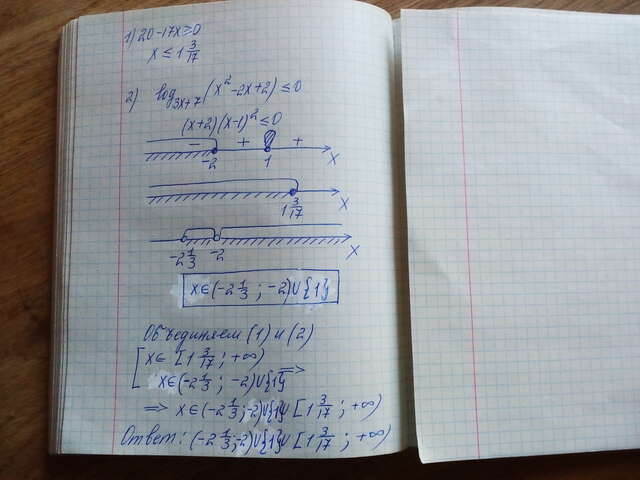 1) 20-17x≥0
x ≤ 1 3/17
2) log₃ₓ₊₇(x²-2x+2) ≤ 0
(x+2)(x-1)² ≤ 0
- + +
-2 1 x
1 3/17 x
-2 1/3 -2 x
x∈(-2 1/3; -2)∪{1}
Объединяем (1) и (2)
[ x∈[1 3/17; +∞)
x∈(-2 1/3; -2)∪{1} =>
=> x∈(-2 1/3; -2)∪{1}∪[1 3/17; +∞)
Ответ: (-2 1/3; -2)∪{1}∪[1 3/17; +∞)